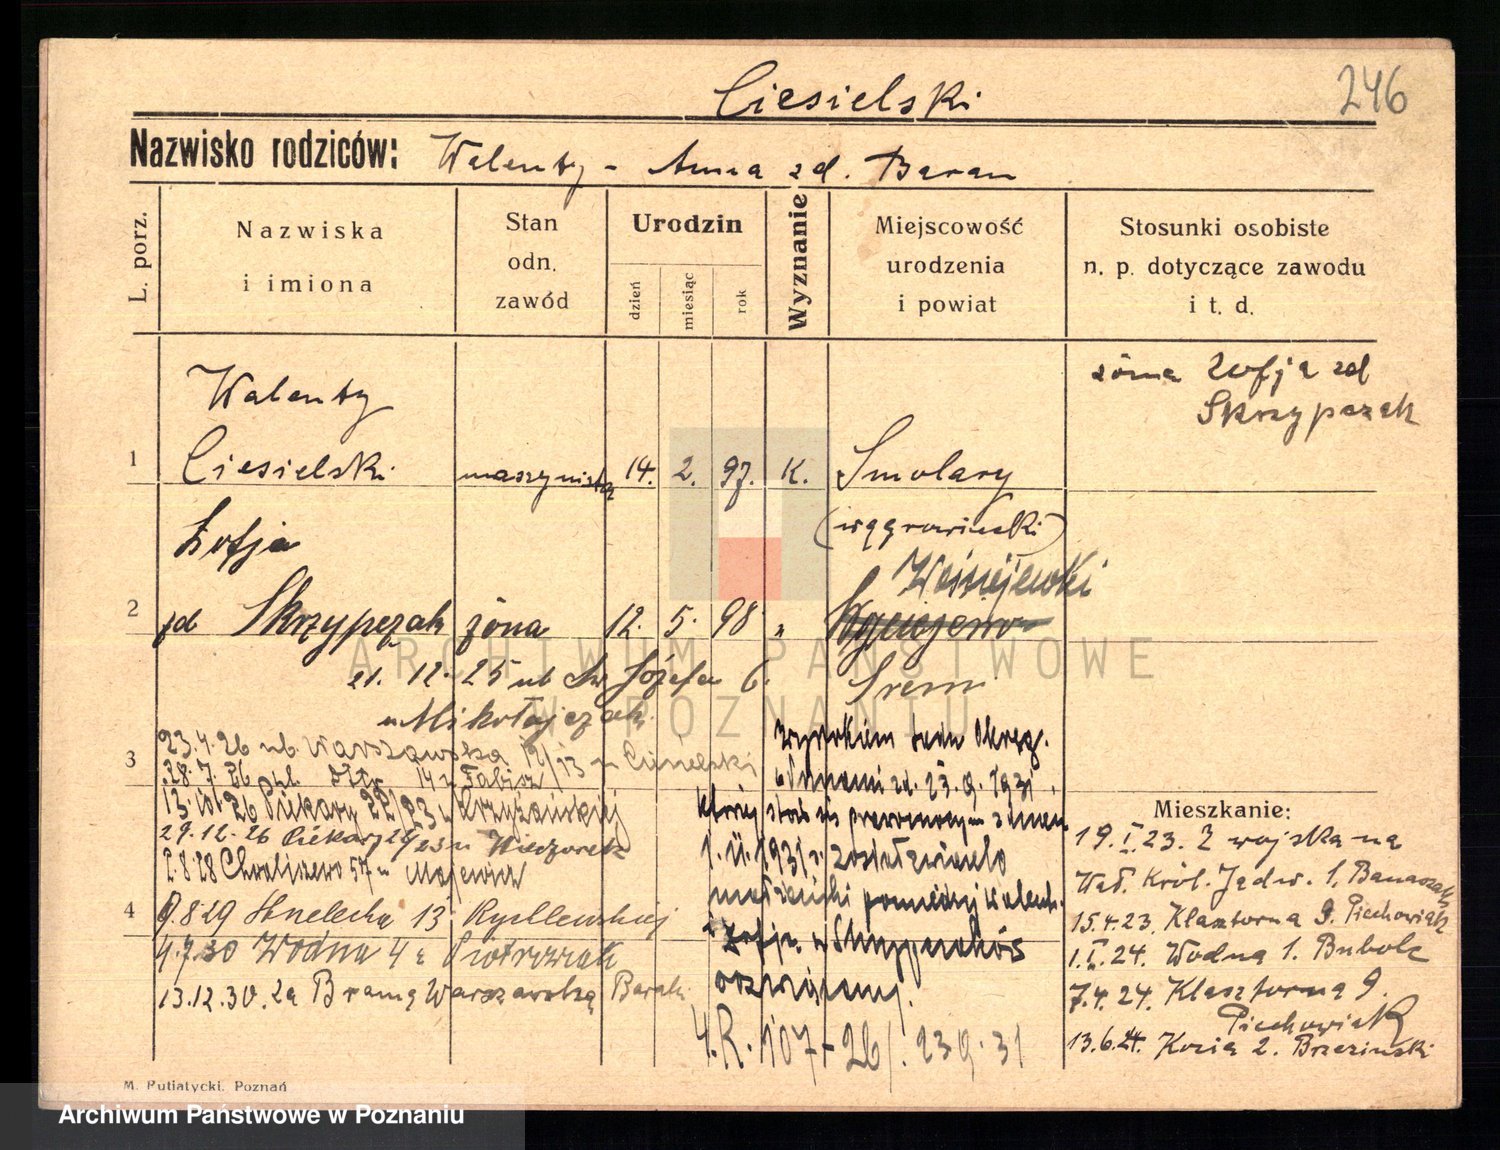 Ciesielski
246
Nazwisko rodziców: Walenty - Anna zd. Baran
L. porz.
Nazwiska i imiona
Stan odn. zawód
Urodzin
dzień
miesiąc
rok
Wyznanie
Miejscowość urodzenia i powiat
Stosunki osobiste n. p. dotyczące zawodu i t. d.
żona Zofja zd
Skrzypczak
Walenty
1 Ciesielski maszynista 14. 2. 97. K. Smolary
(wągrowiecki)
Zofja
2 zd Skrzypczak żona 12. 5. 98 "
Śrem
21. 12. 25 ul Św Józefa 6.
u Mikołajczak
3
23.4.26 ul. Warszawska 12/13 u Ciesielski
28.7.26 14 u Fabisz
26 Piekary 22/23 u Krzyżańskiej
29.12.26 Piekary 22/23 u Wieczorek
2.8.28 Chwaliszewo 57 u Majewicz
4 9.8.29 Strzelecka 13 Rydlewskiej
4.7.30 Wodna 4 u Piotrowiak
13.12.30. za Bramą Warszawską Baraki
Wyrokiem Sądu Okręg.
w Poznaniu zd. 23.9.1931
który stał się prawomocnym z dniem
1. 11. 1931 r. zostało
małżeński pomiędzy Walent.
i Zofją z Skrzypczaków
rozwiązany.
4.R. 107-26/. 23 9. 31
Mieszkanie:
19.I.23. Z wojska na
Wał. Król. Jadw. 1. Banaszak
15.4.23. Klasztorna 9. Piechowiak
1.I.24. Wodna 1. Bubolz
7.4.24. Klasztorna 9.
Piechowiak
13.6.24. Kozia 2. Brzeziński
M. Putiatycki. Poznań
ARCHIWUM PAŃSTWOWE
W POZNANIU
Archiwum Państwowe w Poznaniu